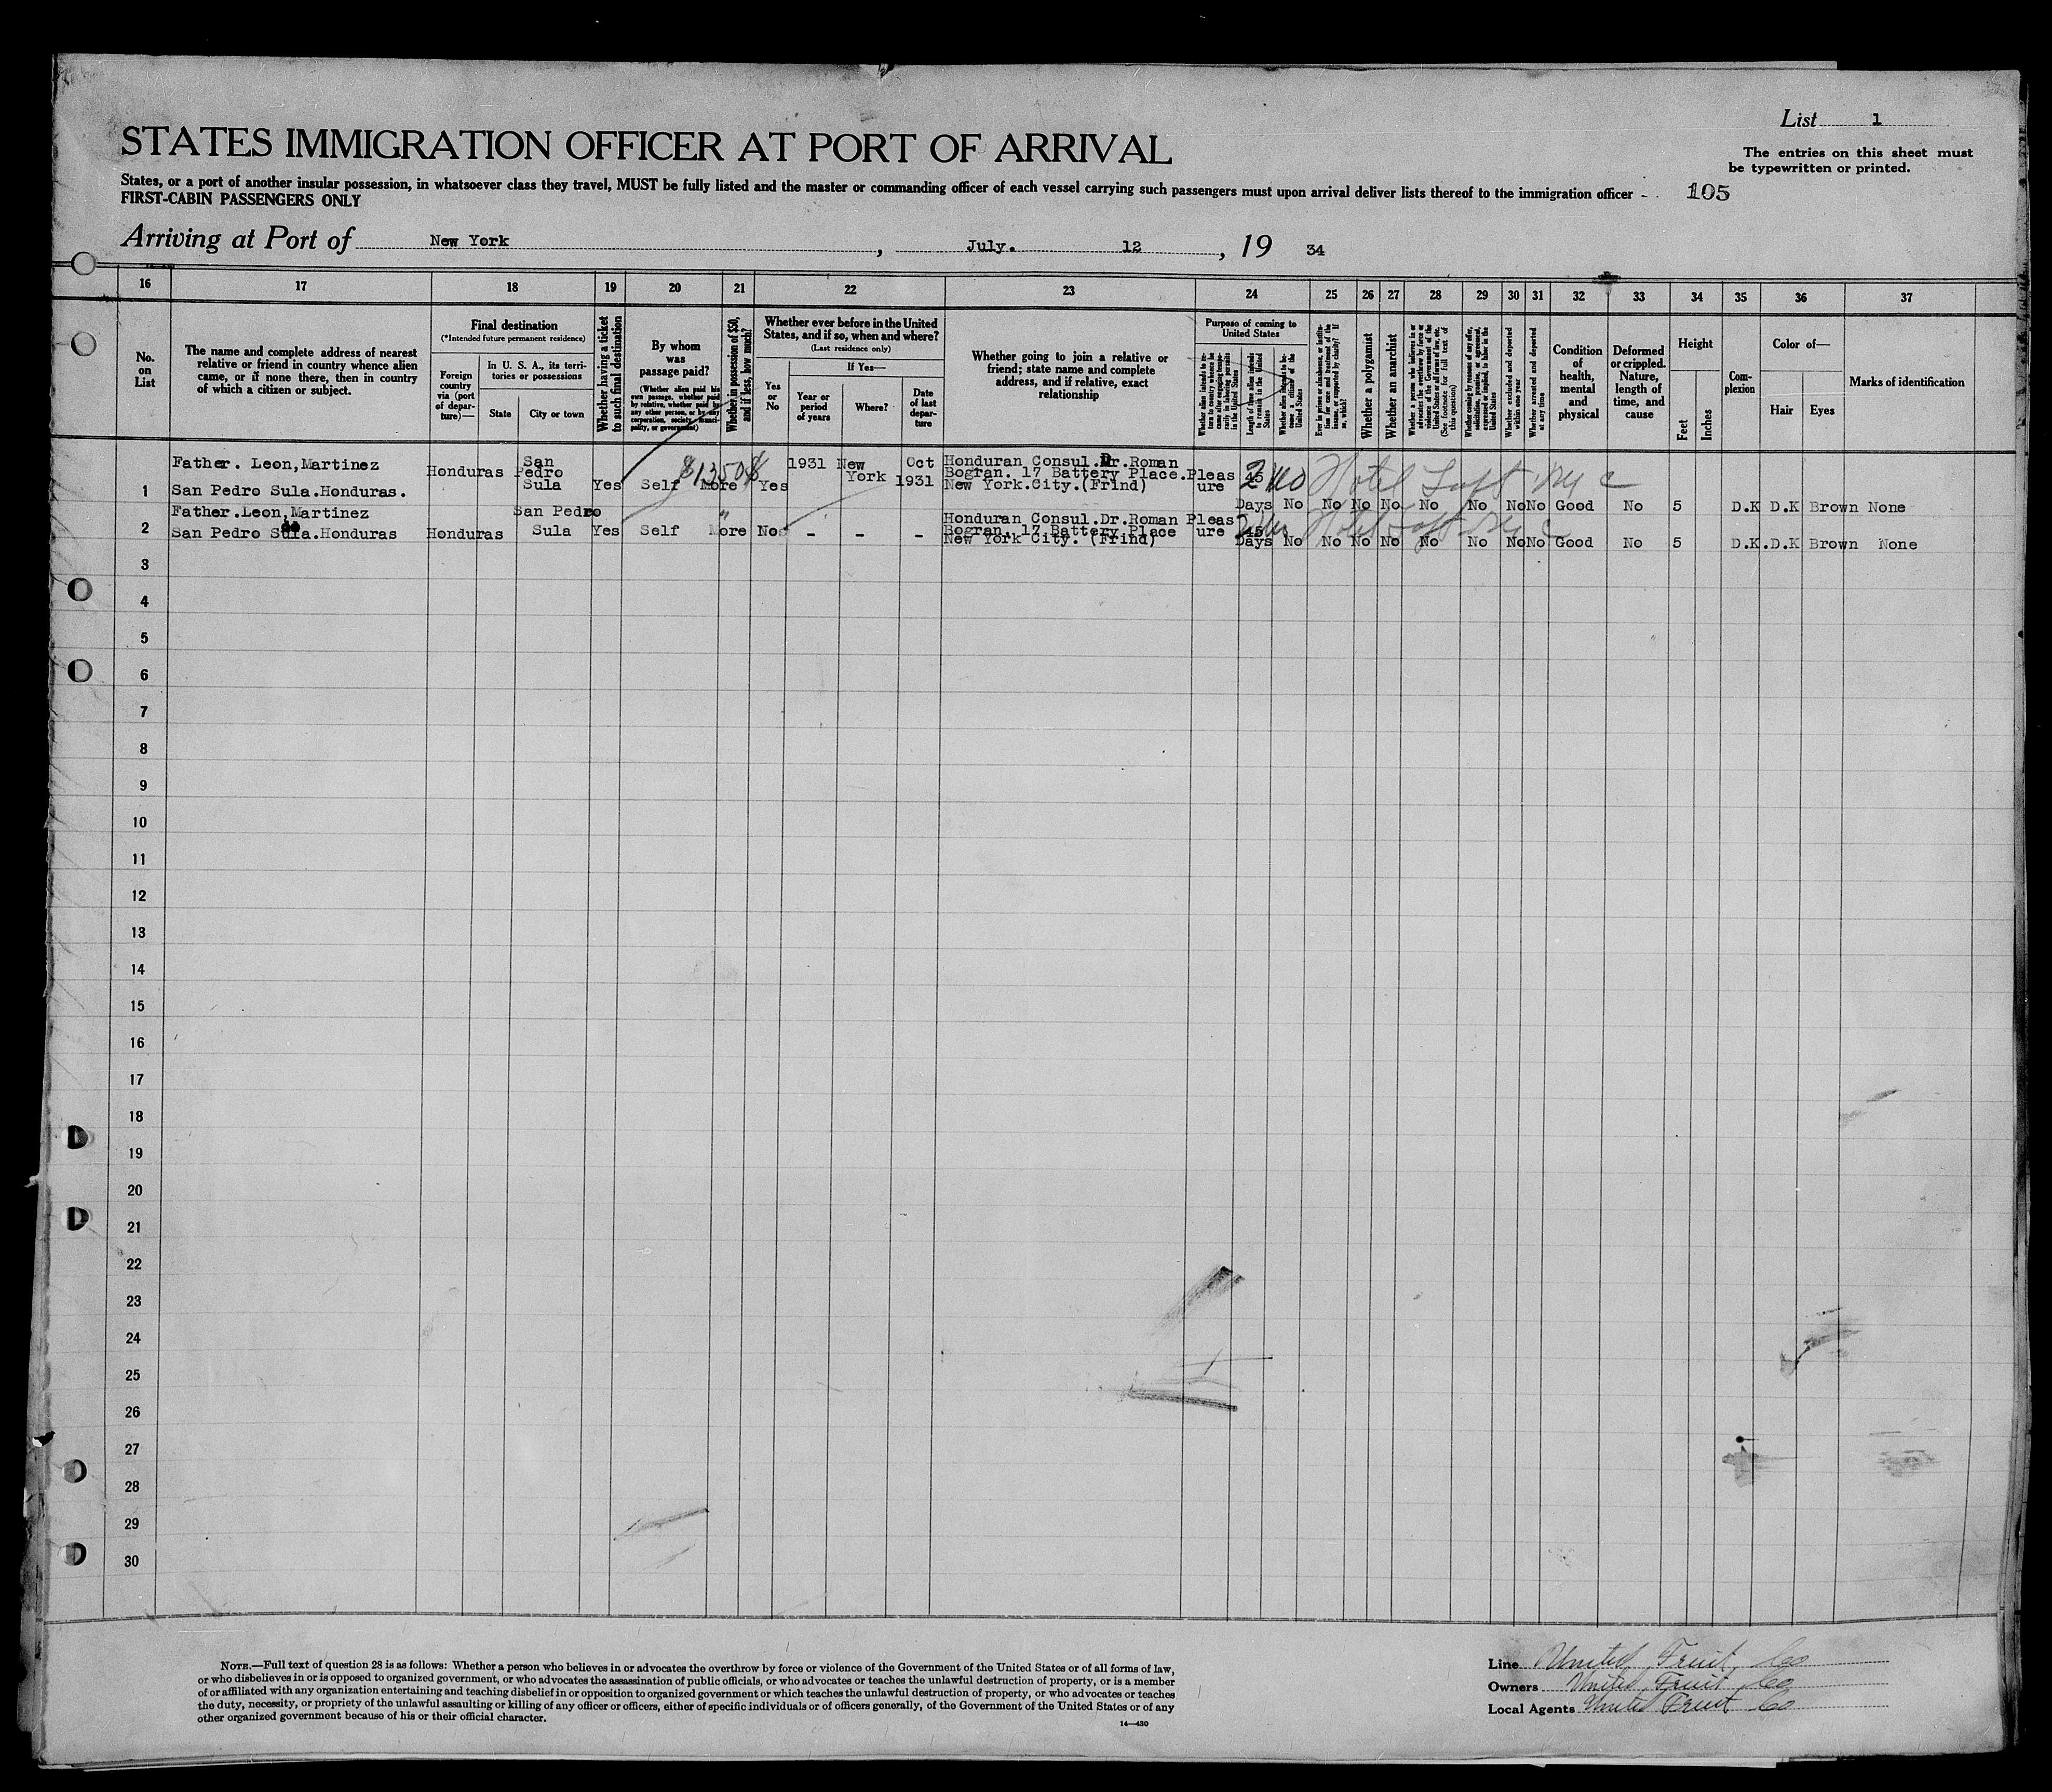 List 1
STATES IMMIGRATION OFFICER AT PORT OF ARRIVAL
The entries on this sheet must
be typewritten or printed.
States, or a port of another insular possession, in whatsoever class they travel, MUST be fully listed and the master or commanding officer of each vessel carrying such passengers must upon arrival deliver lists thereof to the immigration officer
105
FIRST-CABIN PASSENGERS ONLY
Arriving at Port of New York, July. 12, 19 34
16 17 18 19 20 21 22 23 24 25 26 27 28 29 30 31 32 33 34 35 36 37
No.
on
List
The name and complete address of nearest
relative or friend in country whence alien
came, or if none there, then in country
of which a citizen or subject.
Final destination
(*Intended future permanent residence)
Foreign
country
via (port
of depar-
ture)—
In U. S. A., its terri-
tories or possessions
State
City or town
Whether having a ticket
to such final destination
By whom
was
passage paid?
(Whether alien paid his
own passage, whether paid
by relative, whether paid by
any other person, or by any
corporation, society, munici-
pality, or government)
Whether in possession of $50,
and if less, how much?
Whether ever before in the United
States, and if so, when and where?
(Last residence only)
Yes
or
No
If Yes—
Year or
period
of years
Where?
Date
of last
depar-
ture
Whether going to join a relative or
friend; state name and complete
address, and if relative, exact
relationship
Purpose of coming to
United States
Whether alien intends to re-
turn to country whence he
came after engaging tempo-
rarily in laboring pursuits
in the United States
Length of time alien intends
to remain in the United
States
Whether alien intends to be-
come a citizen of the
United States
Ever in prison or almshouse, or institu-
tion for care and treatment of the
insane, or supported by charity? If
so, which?
Whether a polygamist
Whether an anarchist
Whether a person who believes in or
advocates the overthrow by force or
violence of the Government of the
United States or all forms of law, etc.
(See footnote for full text of
this question)
Whether coming by reason of any offer,
solicitation, promise, or agreement,
expressed or implied, to labor in the
United States
Whether excluded and deported
within one year
Whether arrested and deported
at any time
Condition
of
health,
mental
and
physical
Deformed
or crippled.
Nature,
length of
time, and
cause
Height
Feet
Inches
Com-
plexion
Color of—
Hair
Eyes
Marks of identification
Father. Leon,Martinez
San Pedro Sula.Honduras.
1
Honduras
San
Pedro
Sula
Yes
Self
$1350
More
Yes
1931
New
York
Oct
1931
Honduran Consul.Dr.Roman
Bogran. 17 Battery Place.
New York.City.(Frind)
Pleas
ure
45
Days
2 mo
Hotel Taft NYC
No No No No No No No No Good No 5 D.K D.K Brown None
Father.Leon,Martinez
San Pedro Sula.Honduras
2
Honduras
San Pedro
Sula
Yes
Self
"
More
No
- - -
Honduran Consul.Dr.Roman
Bogran. 17 Battery Place
New York City. (Frind)
Pleas
ure
45
Days
Hotel Taft NYC
No No No No No No No No Good No 5 D.K. D.K Brown None
3
4
5
6
7
8
9
10
11
12
13
14
15
16
17
18
19
20
21
22
23
24
25
26
27
28
29
30
NOTE.—Full text of question 28 is as follows: Whether a person who believes in or advocates the overthrow by force or violence of the Government of the United States or of all forms of law,
or who disbelieves in or is opposed to organized government, or who advocates the assassination of public officials, or who advocates or teaches the unlawful destruction of property, or is a member
of or affiliated with any organization entertaining and teaching disbelief in or opposition to organized government or which teaches the unlawful destruction of property, or who advocates or teaches
the duty, necessity, or propriety of the unlawful assaulting or killing of any officer or officers, either of specific individuals or of officers generally, of the Government of the United States or of any
other organized government because of his or their official character.
14—430
Line United Fruit Co
Owners United Fruit Co
Local Agents United Fruit Co